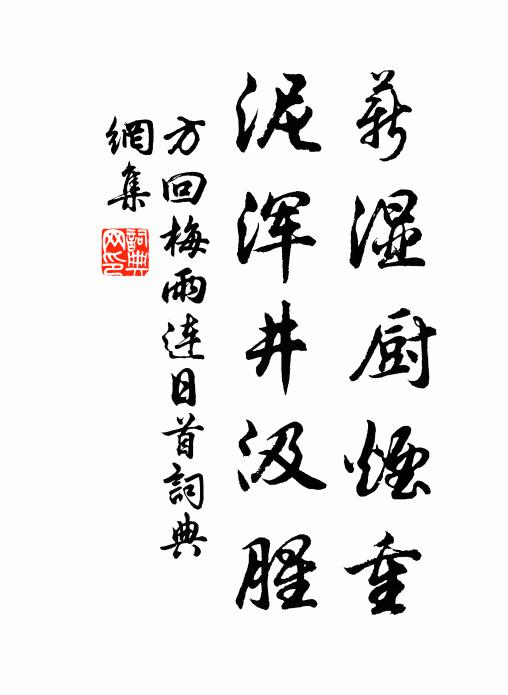 薪湿厨烟重
泥浑井汲腥
方回梅雨连日首詞典
網集
詞典
网印